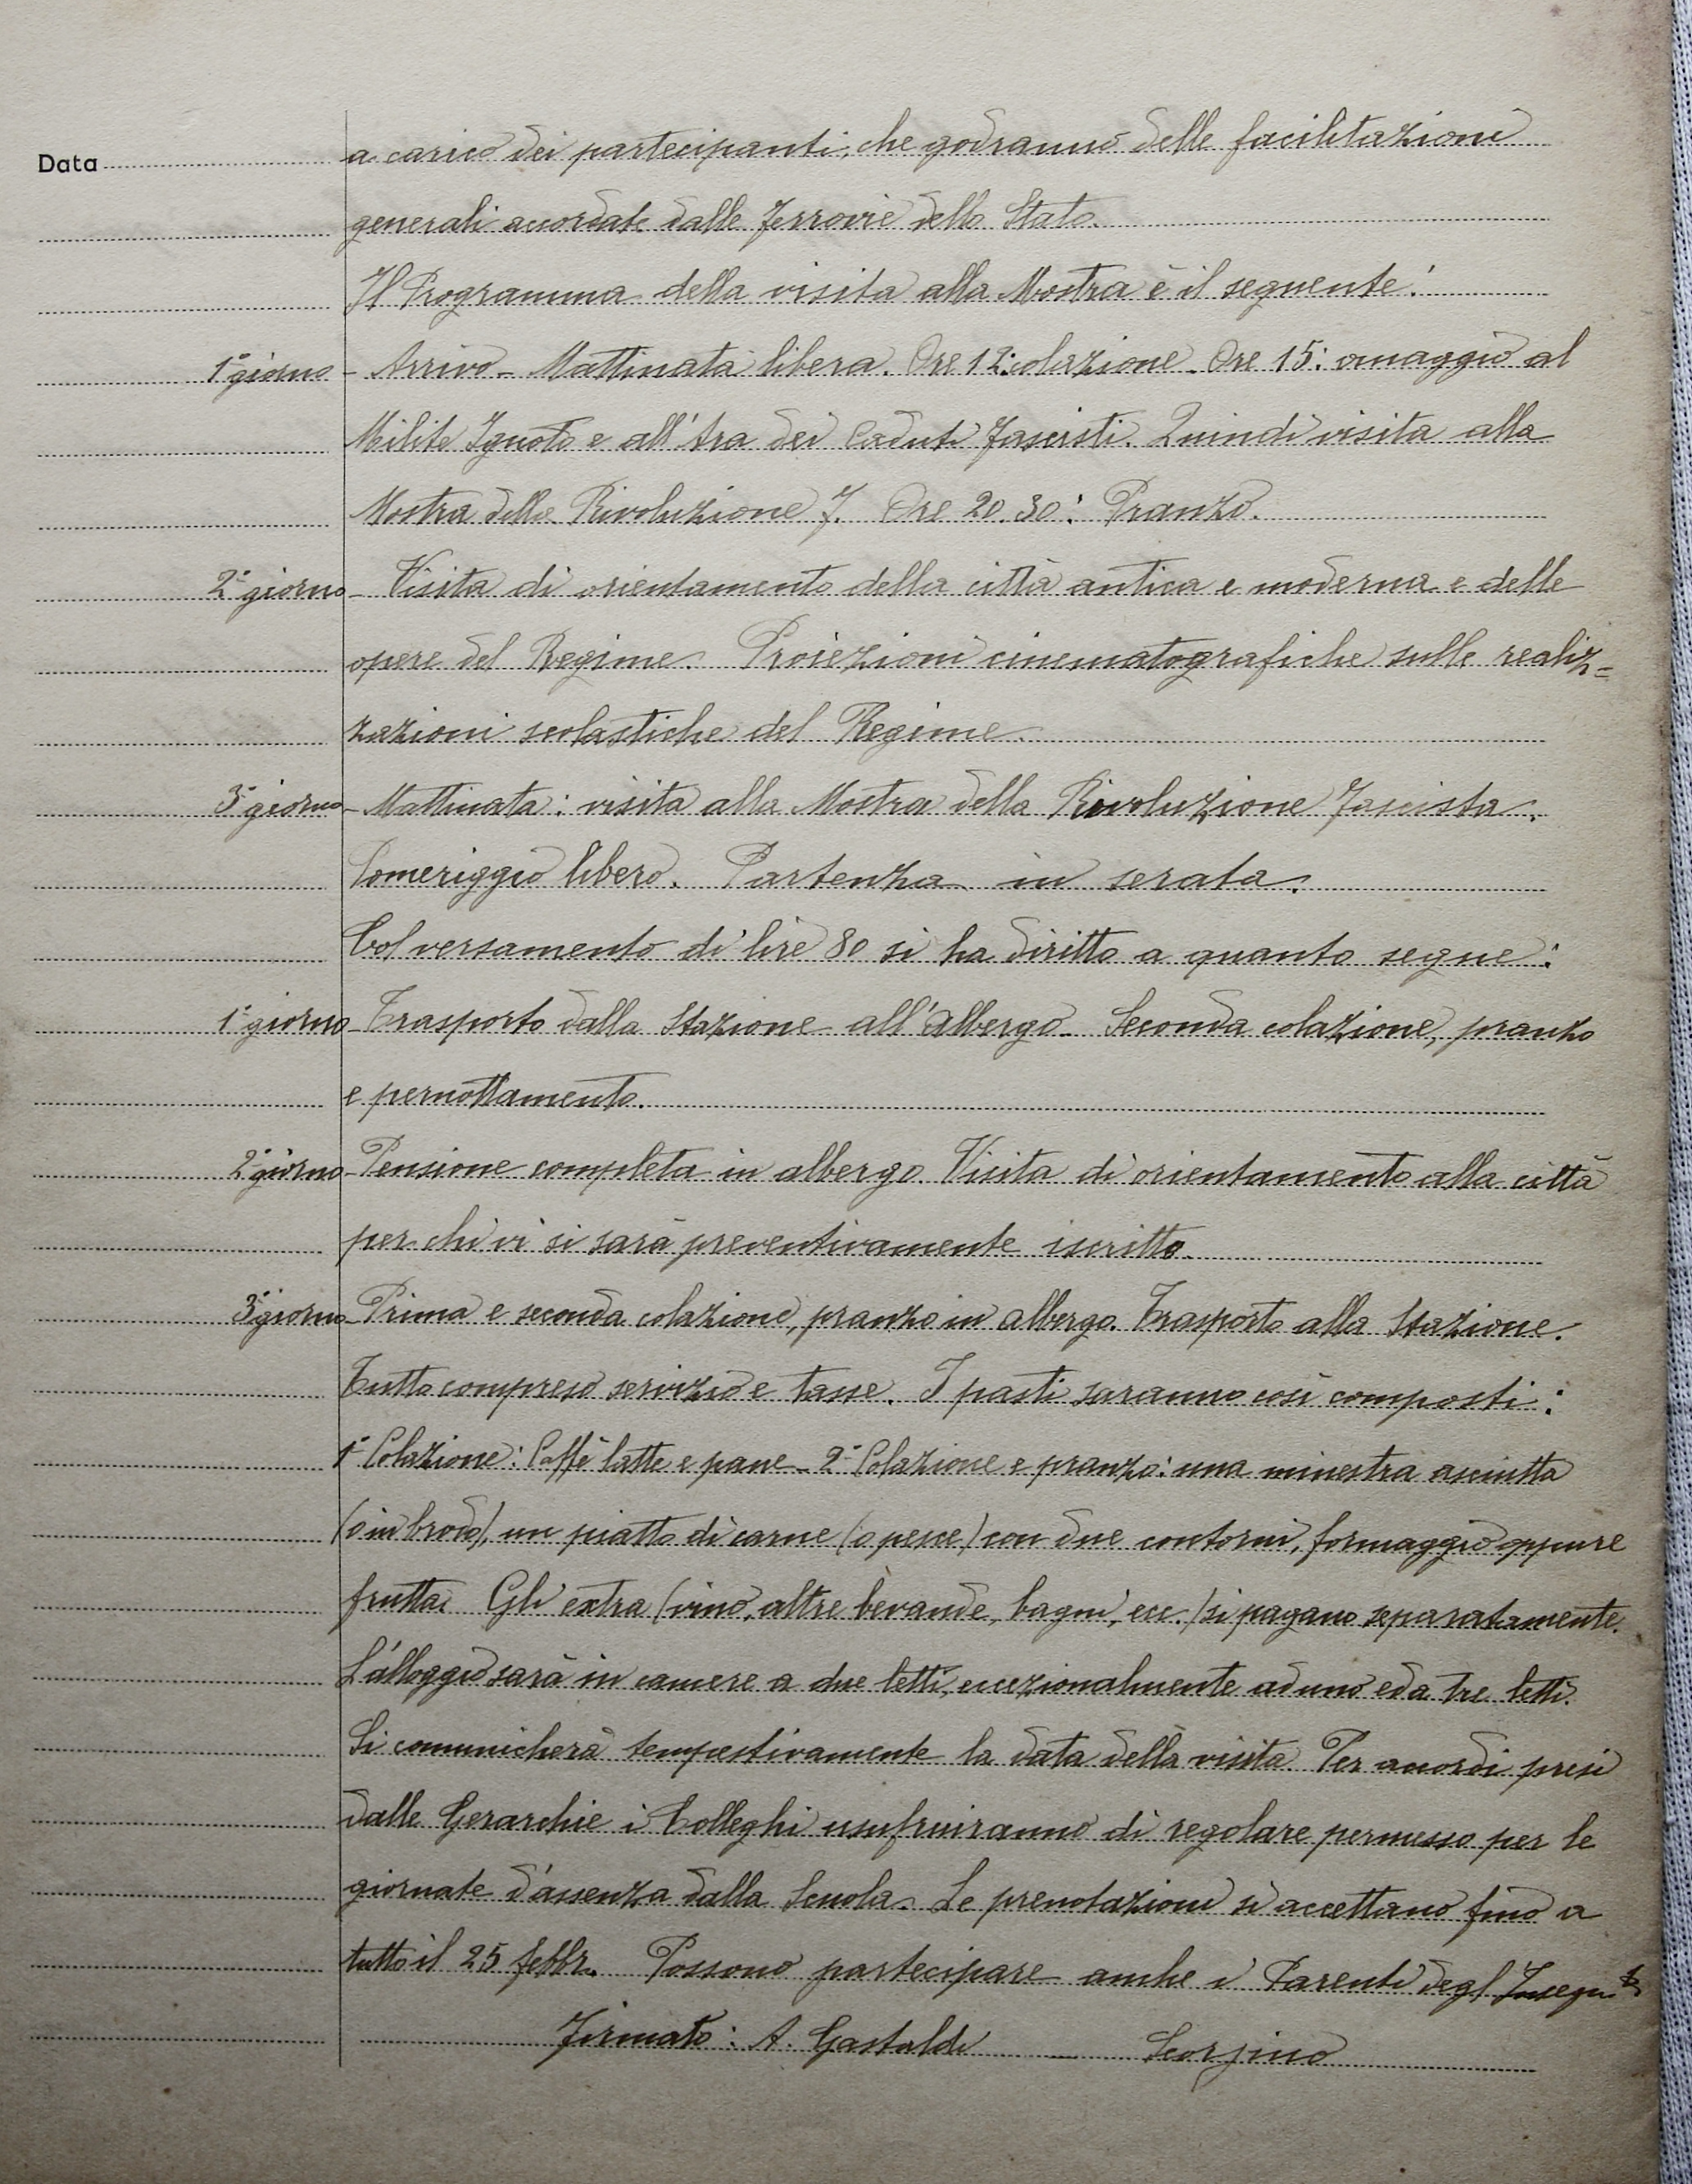 Data a carico dei partecipanti, che godranno delle facilitazioni
generali accordate dalle Ferrovie dello Stato.
Il Programma della visita alla Mostra è il seguente:
1° giorno - Arrivo - Mattinata libera. Ore 12: colazione. Ore 15: omaggio al
Milite Ignoto e all'Ara dei Caduti Fascisti. Quindi visita alla
Mostra della Rivoluzione F. Ore 20.30: Pranzo.
2° giorno - Visita di orientamento della città antica e moderna e delle
opere del Regime. Proiezioni cinematografiche sulle realiz=
zazioni scolastiche del Regime.
3° giorno - Mattinata: visita alla Mostra della Rivoluzione Fascista.
Pomeriggio libero. Partenza in serata.
Col versamento di lire 80 si ha diritto a quanto segue:
1° giorno - Trasporto dalla Stazione all'Albergo. Seconda colazione, pranzo
e pernottamento.
2° giorno - Pensione completa in albergo. Visita di orientamento alla città
per chi vi si sarà preventivamente iscritto.
3° giorno - Prima e seconda colazione, pranzo in albergo. Trasporto alla Stazione.
Tutto compreso servizio e tasse. I pasti saranno così composti:
1ª Colazione: Caffè latte e pane - 2ª Colazione e pranzo: una minestra asciutta
(o in brodo), un piatto di carne (o pesce) con due contorni, formaggio oppure
frutta. Gli extra (vino, altre bevande, bagni, ecc.) si pagano separatamente.
L'alloggio sarà in camere a due letti, eccezionalmente ad uno ed a tre letti.
Si comunicherà tempestivamente la data della visita. Per accordi presi
dalle Gerarchie i Colleghi usufruiranno di regolare permesso per le
giornate d'assenza dalla Scuola. Le prenotazioni si accettano fino a
tutto il 25 febbr. Possono partecipare anche i Parenti degl'Insegnti
Firmato: A. Gastaldi